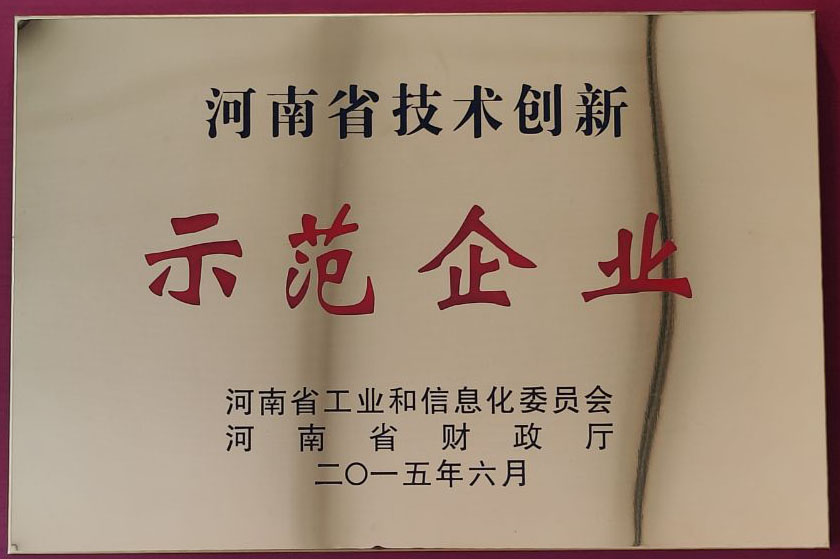 河南省技术创新
示范企业
河南省工业和信息化委员会
河南省财政厅
二〇一五年六月